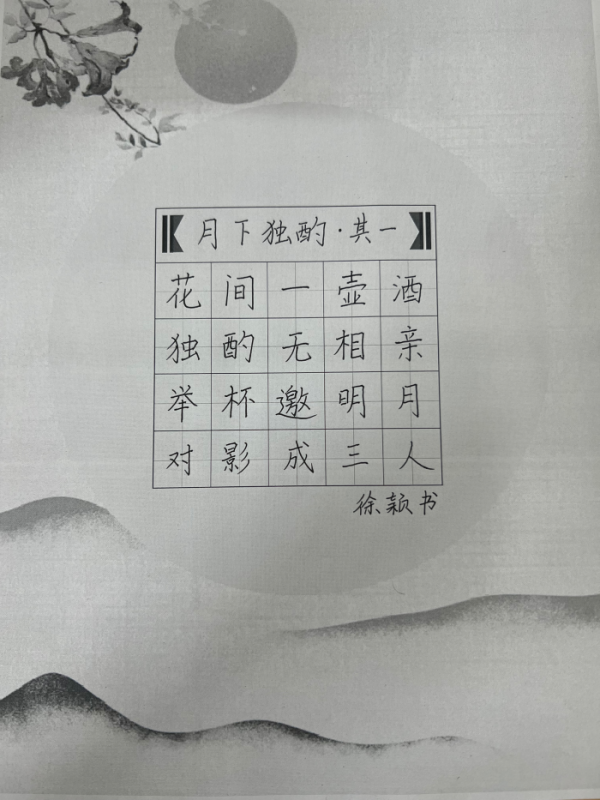 月下独酌·其一
花间一壶酒
独酌无相亲
举杯邀明月
对影成三人
徐颖书